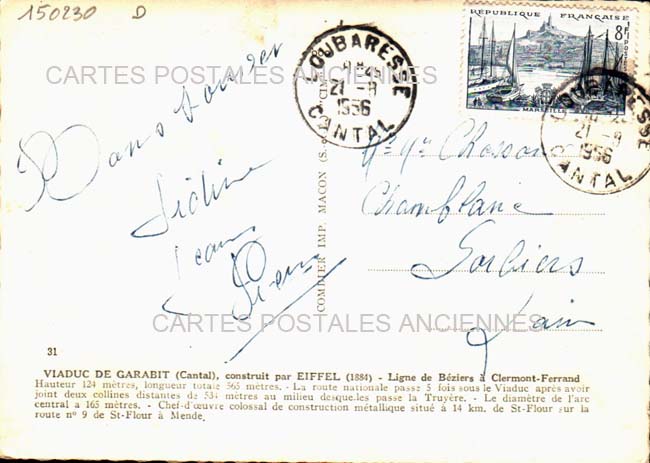 150230 D
RÉPUBLIQUE FRANÇAISE
8F
POSTES
MARSEILLE
LOUBARESSE
21-8
1956
CANTAL
LOUBARESSE
21-8
1956
CANTAL
CARTES POSTALES ANCIENNES
Bons baisers
Jean
Pierre
COMBIER IMP. MACON
Chamblanc
Sorbiers
CARTES POSTALES ANCIENNES
31
VIADUC DE GARABIT (Cantal), construit par EIFFEL (1884) - Ligne de Béziers à Clermont-Ferrand
Hauteur 124 mètres, longueur totale 565 mètres. - La route nationale passe 5 fois sous le Viaduc après avoir
joint deux collines distantes de 534 mètres au milieu desquelles passe la Truyère. - Le diamètre de l'arc
central a 165 mètres. - Chef-d'œuvre colossal de construction métallique situé à 14 km. de St-Flour sur la
route nº 9 de St-Flour à Mende.